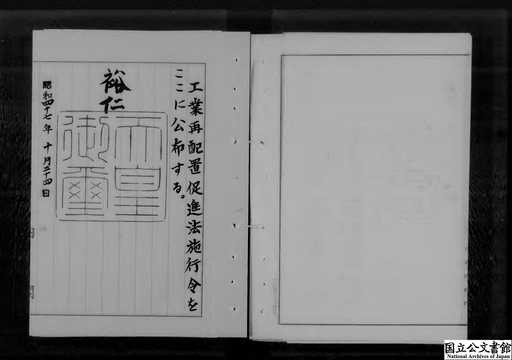 工業再配置促進法施行令を
ここに公布する。
裕仁
天皇
御璽
昭和四十七年十月二十四日
国立公文書館
National Archives of Japan